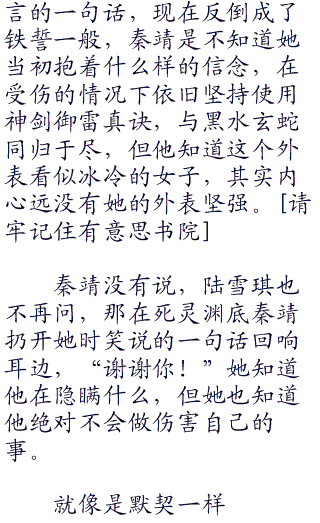 言的一句话，现在反倒成了
铁誓一般，秦靖是不知道她
当初抱着什么样的信念，在
受伤的情况下依旧坚持使用
神剑御雷真诀，与黑水玄蛇
同归于尽，但他知道这个外
表看似冰冷的女子，其实内
心远没有她的外表坚强。[请
牢记住有意思书院]
秦靖没有说，陆雪琪也
不再问，那在死灵渊底秦靖
扔开她时笑说的一句话回响
耳边，“谢谢你！”她知道
他在隐瞒什么，但她也知道
他绝对不会做伤害自己的
事。
就像是默契一样